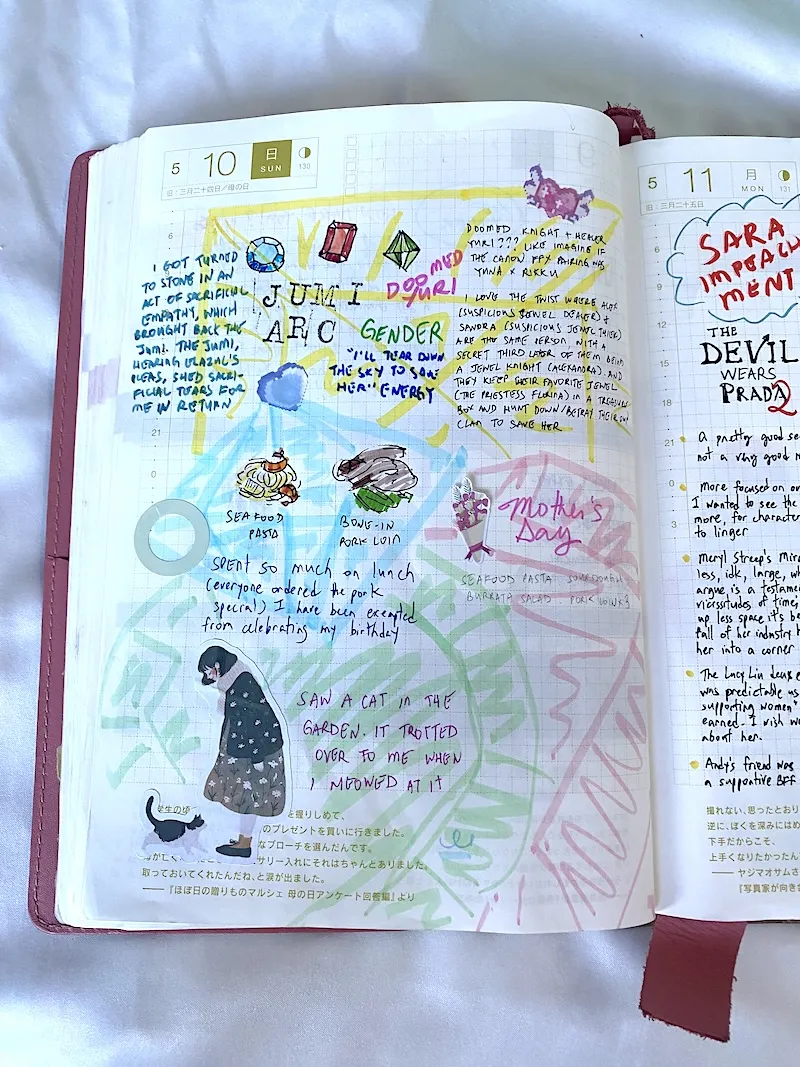 5 10 日 SUN 130
旧:三月二十四日/母の日
6
I GOT TURNED
TO STONE IN AN
ACT OF SACRIFICIAL
EMPATHY, WHICH
BROUGHT BACK THE
JUMI. THE JUMI,
HEARING ELAZUL'S
PLEAS, SHED SACRI-
FICIAL TEARS FOR
ME IN RETURN
JUMI
ARC
DOOMED
YURI
GENDER
"I'LL TEAR DOWN
THE SKY TO SAVE
HER" ENERGY
DOOMED KNIGHT + HEALER
YURI??? LIKE IMAGINE IF
THE CANON FFX PAIRING WAS
YUNA X RIKKU
I LOVE THE TWIST WHERE ALEX
(SUSPICIOUS JEWEL DEALER) +
SANDRA (SUSPICIOUS JEWEL THIEF)
ARE THE SAME PERSON, WITH A
SECRET THIRD LAYER OF THEM BEING
A JEWEL KNIGHT (ALEXANDRA). AND
THEY KEEP THEIR FAVORITE JEWEL
(THE PRIESTESS FLORINA) IN A TREASURE
BOX AND HUNT DOWN/BETRAY THEIR OWN
CLAN TO SAVE HER
15
18
21
0
3
SEAFOOD
PASTA
BONE-IN
PORK LOIN
SPENT SO MUCH ON LUNCH
(everyone ordered the pork
special) I have been exempted
from celebrating my birthday
Mother's
Day
SEAFOOD PASTA SOURDOUGH
BURRATA SALAD PORK LOIN X3
SAW A CAT IN THE
GARDEN. IT TROTTED
OVER TO ME WHEN
I MEOWED AT IT
学生の
と握りしめて、
のプレゼントを買いに行きました。
なブローチを選んだんです。
サリー入れにそれはちゃんとありました。
取っておいてくれたんだね、と涙が出ました。
——『ほぼ日の贈りものマルシェ 母の日アンケート回答編』より
5 11 月 MON 131
旧:三月二十五日
6
9
SARA
IMPEACH
MENT
THE
DEVIL
WEARS
PRADA
2
15
18
21
0
3
A pretty good se
not a very good
more focused on
I wanted to see the
more, for character
to linger
Meryl Streep's Mira
less, idk, large, wh
argue is a testame
vicissitudes of time,
up less space it's be
fall of her industry h
her into a corner
The Lucy Liu deus e
was predictable as
supporting women"
earned. I wish we
about her.
Andy's friend was
a supportive BFF
撮れない、思ったとおり
逆に、ぼくを深みにはめ
下手だからこそ、
上手くなりたかったん
——ヤジマオサムさ
『写真家が向き